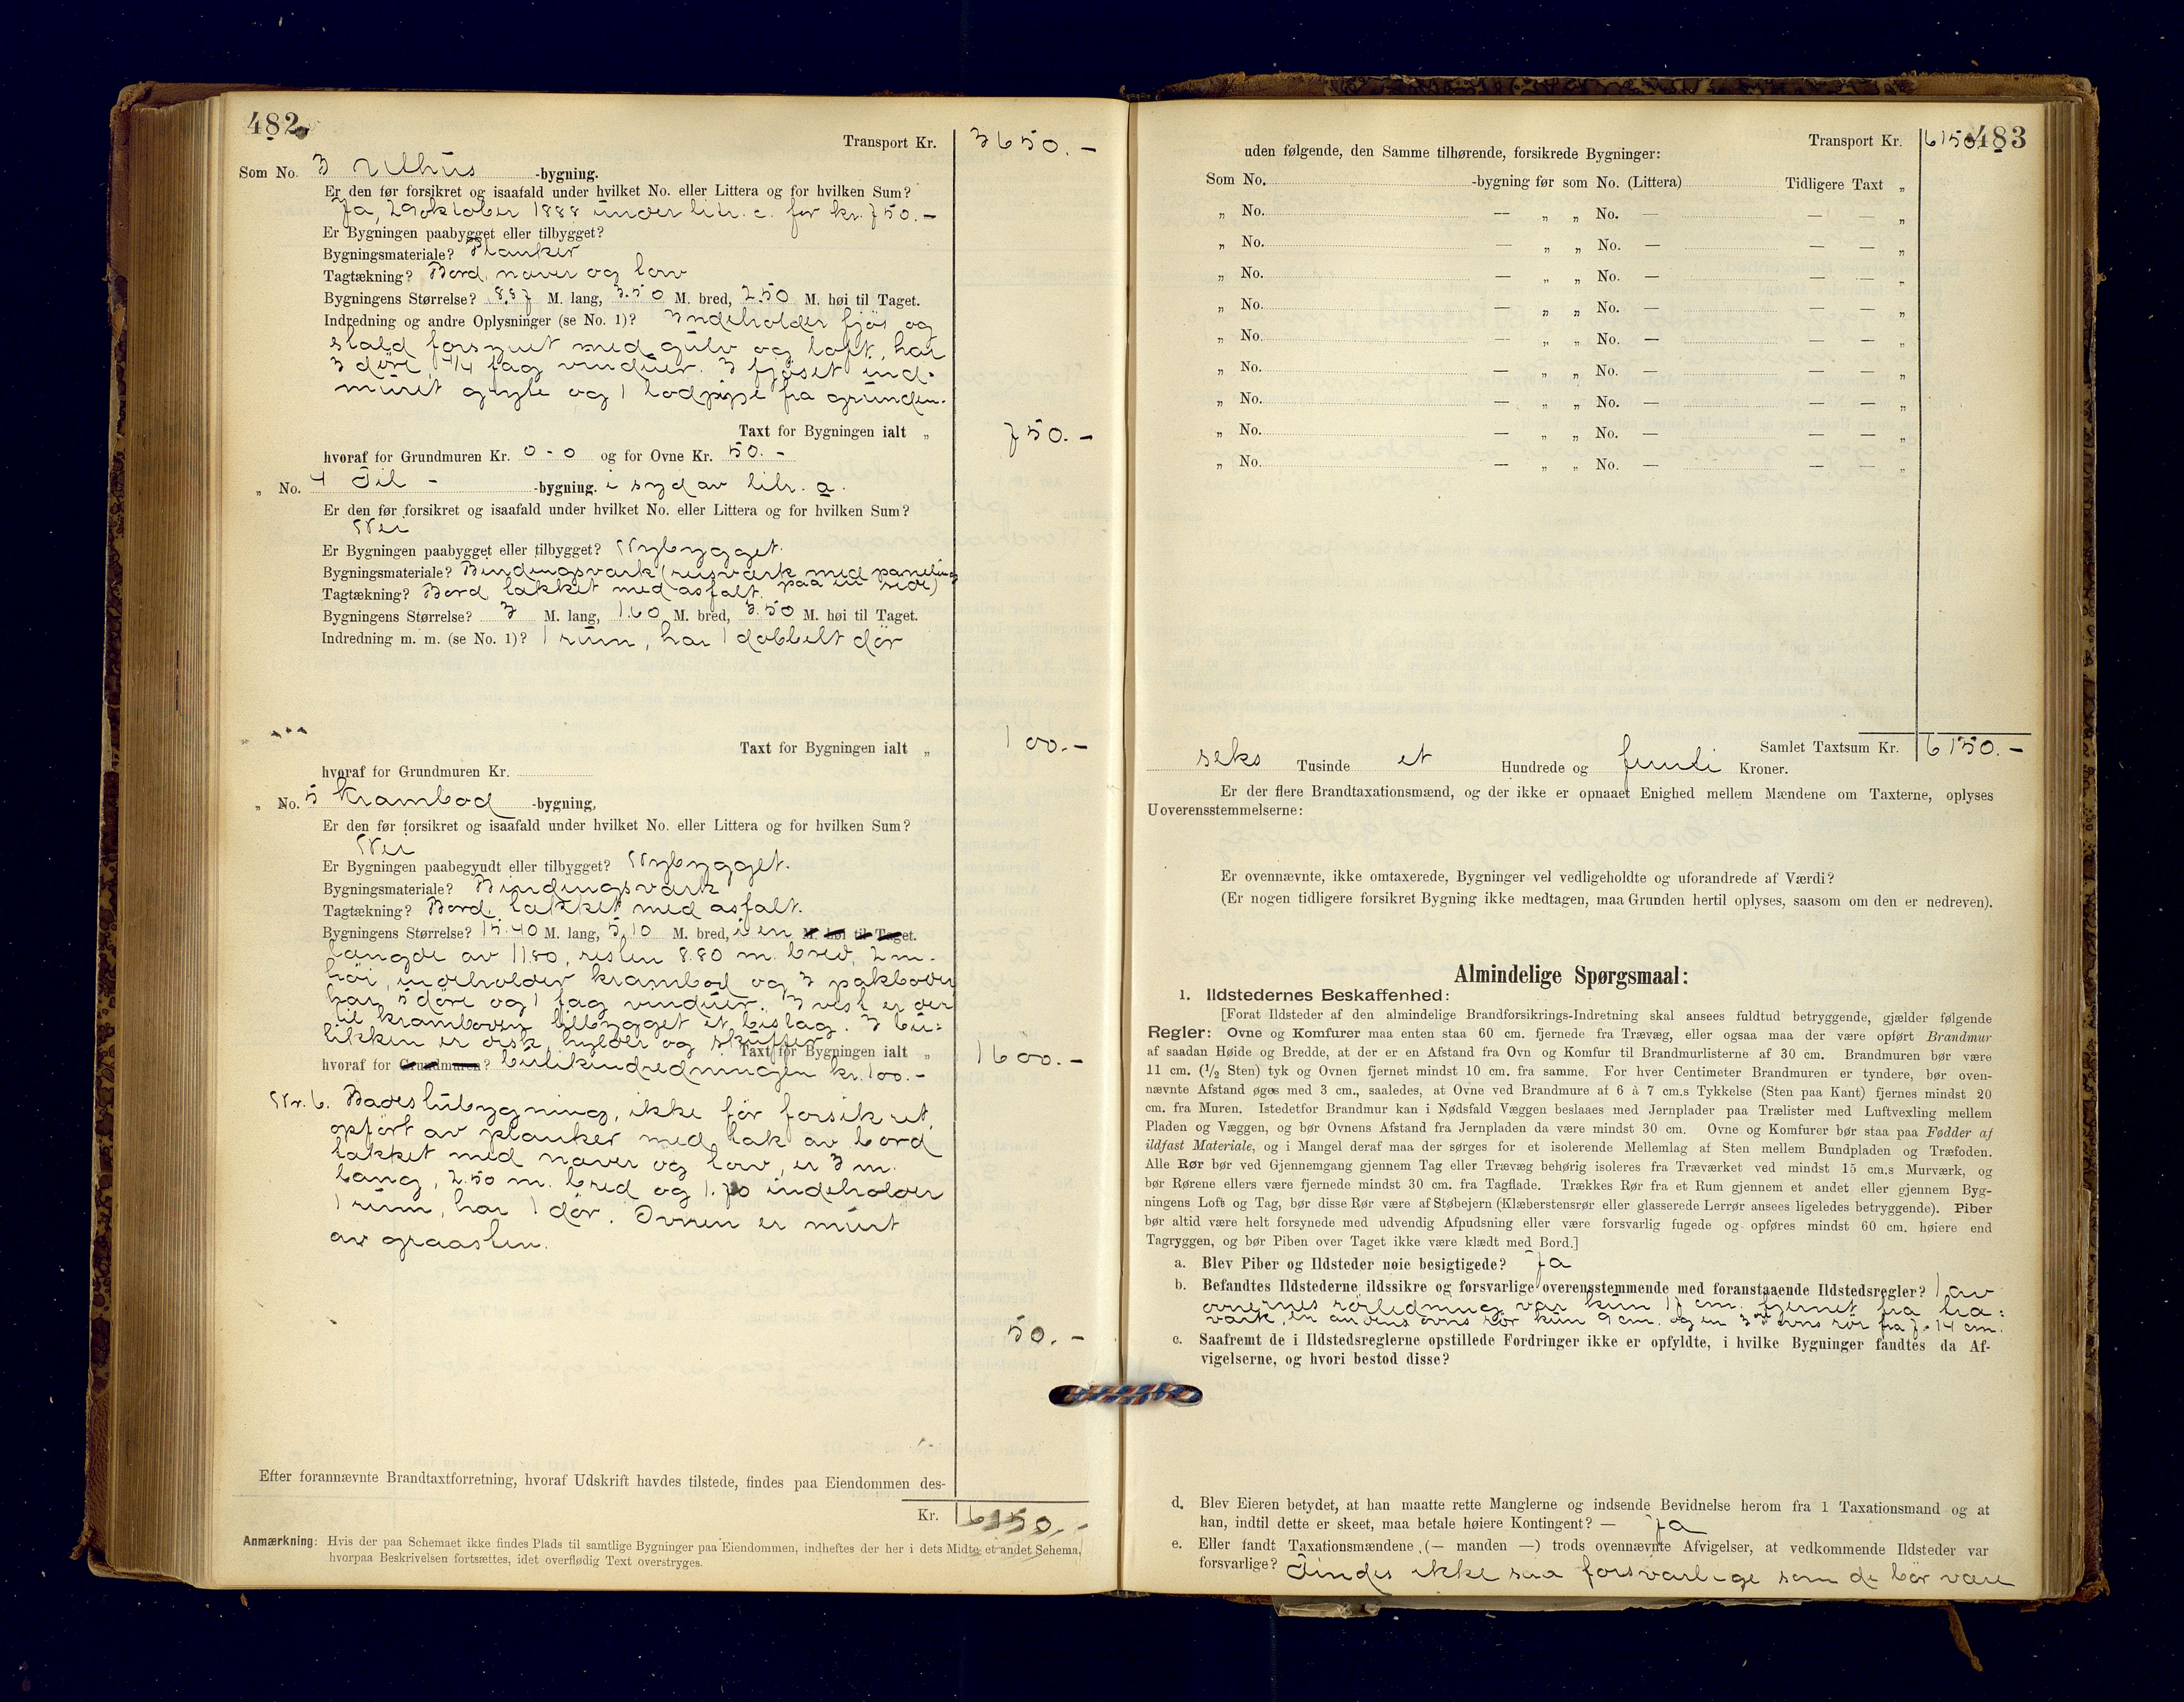 482
Transport Kr. 3650.-
Som No. 3 Uthus -bygning.
Er den før forsikret og isaafald under hvilket No. eller Littera og for hvilken Sum?
Ja, 29 oktober 1888 under litr. c. for kr. 750.-
Er Bygningen paabygget eller tilbygget?
Bygningsmateriale? Planker
Tagtækning? Bord, næver og torv
Bygningens Størrelse? 8.87 M. lang, 3.50 M. bred, 2.50 M. høi til Taget.
Indredning og andre Oplysninger (se No. 1)? Indeholder fjös og
stald forsynet med gulv og loft, har
3 döre, 4/4 fag vinduer. I fjöset ind-
muret gryte og 1 lodpipe fra grunden.
Taxt for Bygningen ialt „ 750.-
hvoraf for Grundmuren Kr. 0-0 og for Ovne Kr. 50.-
„ No. 4 Til- -bygning. i syd av litr. a.
Er den før forsikret og isaafald under hvilket No. eller Littera og for hvilken Sum?
Nei
Er Bygningen paabygget eller tilbygget? Nybygget.
Bygningsmateriale? Bindingsværk (reisværk med paneling
paa en side)
Tagtækning? Bord, tækket med asfalt.
Bygningens Størrelse? 3 M. lang, 1.60 M. bred, 3.50 M. høi til Taget.
Indredning m. m. (se No. 1)? 1 rum, har 1 dobbelt dör
Taxt for Bygningen ialt „ 100.-
hvoraf for Grundmuren Kr.
„ No. 5 Krambod -bygning.
Er den før forsikret og isaafald under hvilket No. eller Littera og for hvilken Sum?
Nei
Er Bygningen paabegyndt eller tilbygget? Nybygget.
Bygningsmateriale? Bindingsværk
Tagtækning? Bord, tækket med asfalt.
Bygningens Størrelse? 15.40 M. lang, 5.10 M. bred, i en M. høi til Taget.
længde av 11.80, resten 8.80 m. bred, 2 m.
höi, indeholder krambod og 3 pakboder
har 5 döre og 1 fag vinduer. I vest er der
til kramboden tilbygget et bislag. I bu-
tikken er disk, hylder og skuffer
Taxt for Bygningen ialt „ 1600.-
hvoraf for Grundmuren? butikindredningen kr. 100.-
Nr. 6. Badestubygning, ikke för forsikret,
opfört av planker med tak av bord
tækket med næver og torv, er 3 m.
lang, 2.50 m. bred og 1.70 indeholder
1 rum, har 1 dör. Ovnen er muret
av graasten.
50.-
Efter forannævnte Brandtaxtforretning, hvoraf Udskrift havdes tilstede, findes paa Eiendommen des-
Kr. 6150.-
Anmærkning: Hvis der paa Schemaet ikke findes Plads til samtlige Bygninger paa Eiendommen, indheftes der her i dets Midte et andet Schema,
hvorpaa Beskrivelsen fortsættes, idet overflødig Text overstryges.
483
Transport Kr. 6150.-
uden følgende, den Samme tilhørende, forsikrede Bygninger:
Som No. -bygning før som No. (Littera) Tidligere Taxt „
„ No. — „ „ No. — — — „
„ No. — „ „ No. — — — „
„ No. — „ „ No. — — — „
„ No. — „ „ No. — — — „
„ No. — „ „ No. — — — „
„ No. — „ „ No. — — — „
„ No. — „ „ No. — — — „
„ No. — „ „ No. — — — „
„ No. — „ „ No. — — — „
Samlet Taxtsum Kr. 6150.-
seks Tusinde et Hundrede og femti Kroner.
Er der flere Brandtaxationsmænd, og der ikke er opnaaet Enighed mellem Mændene om Taxterne, oplyses
Uoverensstemmelserne:
Er ovennævnte, ikke omtaxerede, Bygninger vel vedligeholdte og uforandrede af Værdi?
(Er nogen tidligere forsikret Bygning ikke medtagen, maa Grunden hertil oplyses, saasom om den er nedreven).
Almindelige Spørgsmaal:
1. Ildstedernes Beskaffenhed:
[Forat Ildsteder af den almindelige Brandforsikrings-Indretning skal ansees fuldtud betryggende, gjælder følgende
Regler: Ovne og Komfurer maa enten staa 60 cm. fjernede fra Trævæg, eller ogsaa maa der være opført Brandmur
af saadan Høide og Bredde, at der er en Afstand fra Ovn og Komfur til Brandmurlisterne af 30 cm. Brandmuren bør være
11 cm. (1/2 Sten) tyk og Ovnen fjernet mindst 10 cm. fra samme. For hver Centimeter Brandmuren er tyndere, bør oven-
nævnte Afstand øges med 3 cm., saaledes, at Ovne ved Brandmure af 6 à 7 cm.s Tykkelse (Sten paa Kant) fjernes mindst 20
cm. fra Muren. Istedetfor Brandmur kan i Nødsfald Væggen beslaaes med Jernplader paa Trælister med Luftvexling mellem
Pladen og Væggen, og bør Ovnens Afstand fra Jernpladen da være mindst 30 cm. Ovne og Komfurer bør staa paa Fødder af
ildfast Materiale, og i Mangel deraf maa der sørges for et isolerende Mellemlag af Sten mellem Bundpladen og Træfoden.
Alle Rør bør ved Gjennemgang gjennem Tag eller Trævæg behørig isoleres fra Træværket ved mindst 15 cm.s Murværk, og
bør Rørene ellers være fjernede mindst 30 cm. fra Tagflade. Trækkes Rør fra et Rum gjennem et andet eller gjennem Byg-
ningens Loft og Tag, bør disse Rør være af Støbejern (Klæberstensrør eller glasserede Lerrør ansees ligeledes betryggende). Piber
bør altid være helt forsynede med udvendig Afpudsning eller være forsvarlig fugede og opføres mindst 60 cm. høiere end
Tagryggen, og bør Piben over Taget ikke være klædt med Bord.]
a. Blev Piber og Ildsteder nøie besigtigede? Ja
b. Befandtes Ildstederne ildssikre og forsvarlige overensstemmende med foranstaaende Ildstedsregler? 1 av
ovnernes rörledning var kun 17 cm. fjernet fra træ-
værk, en andens ovns rör kun 9 cm. og en 3die ovns rör fra 7-14 cm.
c. Saafremt de i Ildstedsreglerne opstillede Fordringer ikke er opfyldte, i hvilke Bygninger fandtes da Af-
vigelserne, og hvori bestod disse?
d. Blev Eieren betydet, at han maatte rette Manglerne og indsende Bevidnelse herom fra 1 Taxationsmand og at
han, indtil dette er skeet, maa betale høiere Kontingent? — Ja
e. Eller fandt Taxationsmændene (— manden —) trods ovennævnte Afvigelser, at vedkommende Ildsteder var
forsvarlige? Findes ikke saa forsvarlige som de bör være